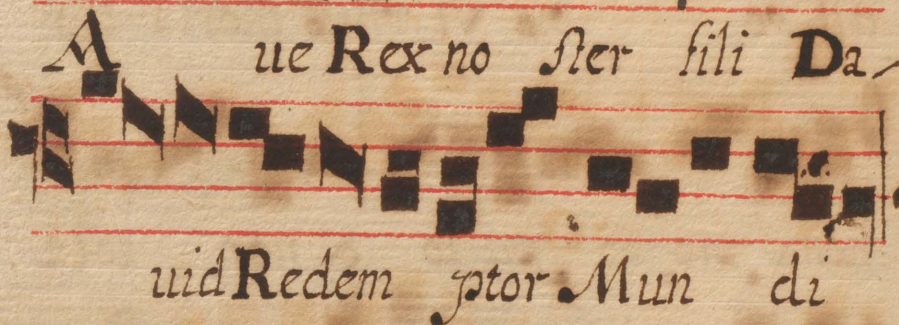 Aue Rex noster fili Da-
uid Redemptor Mundi